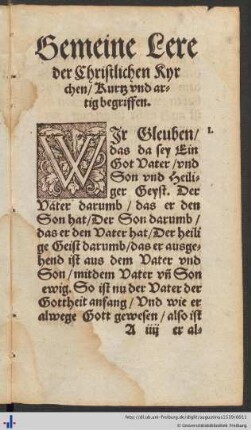 Gemeine Lere
der Christlichen Kyr
chen/Kurtz vnd ar-
tig begriffen.
WIr Gleuben/
das da sey Ein
Got Vater/vnd
Son vnd Heili-
ger Geyst. Der
Vater darumb/das er den
Son hat/Der Son darumb/
das er den Vater hat/Der heili
ge Geist darumb/das er ausge-
hend ist aus dem Vater vnd
Son/mitdem Vater vñ Son
ewig. So ist nu der Vater der
Gottheit anfang/Vnd wie er
alwege Gott gewesen/also ist
A iiij er al-
I.
© Universitätsbibliothek Freiburg